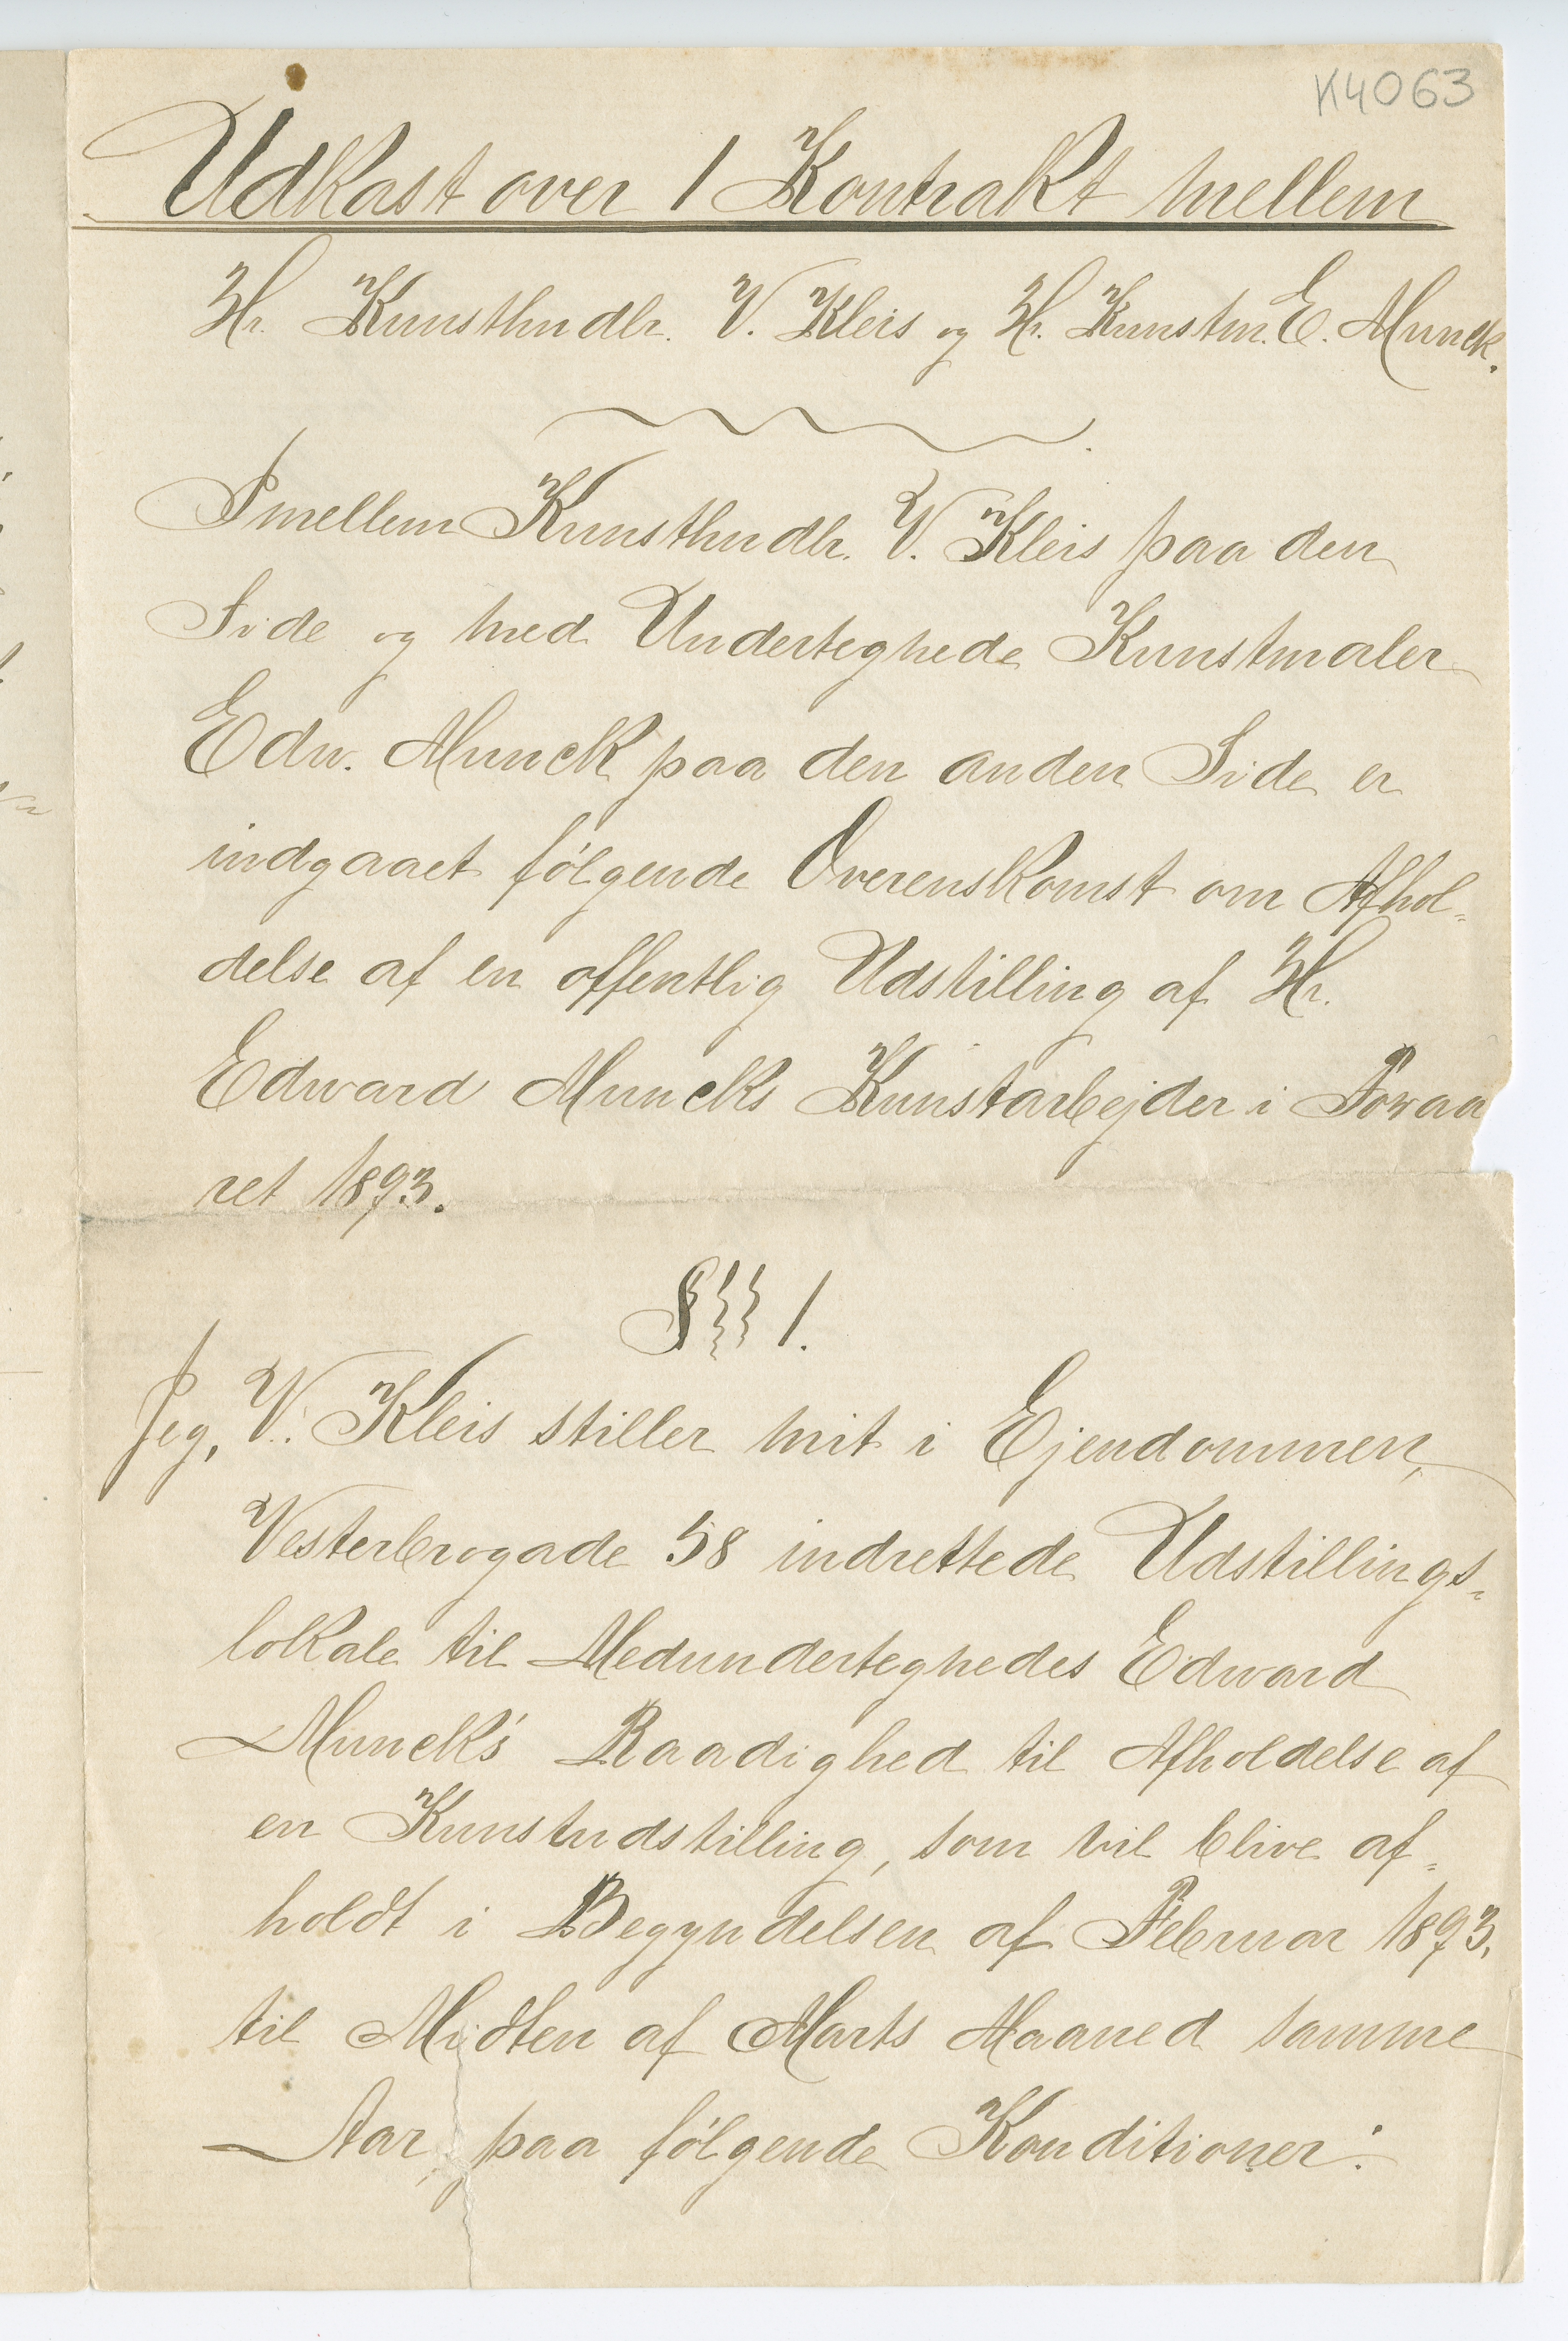 K4063
Udkast over 1 Kontrakt mellem
Hr. Kunsthndlr. V. Kleis og Hr. Kunstm. E. Munck.
Imellem Kunsthndlr. V. Kleis paa den
Side og med Undertegnede Kunstmaler
Edw. Munck paa den anden Side er
indgaaet følgende Overenskomst om Afhol=
delse af en offentlig Udstilling af Hr.
Edward Muncks Kunstarbejder i Foraa
ret 1893.
§§§ 1.
Jeg, V. Kleis stiller mit i Ejendommen,
Vesterbrogade 58 indrettede Udstillings=
lokale til Medundertegnedes Edward
Munck's Raadighed til Afholdelse af
en Kunstudstilling, som vil blive af=
holdt i Begyndelsen af Februar 1893.
til Midten af Marts Maaned samme
Aar, paa følgende Konditioner: